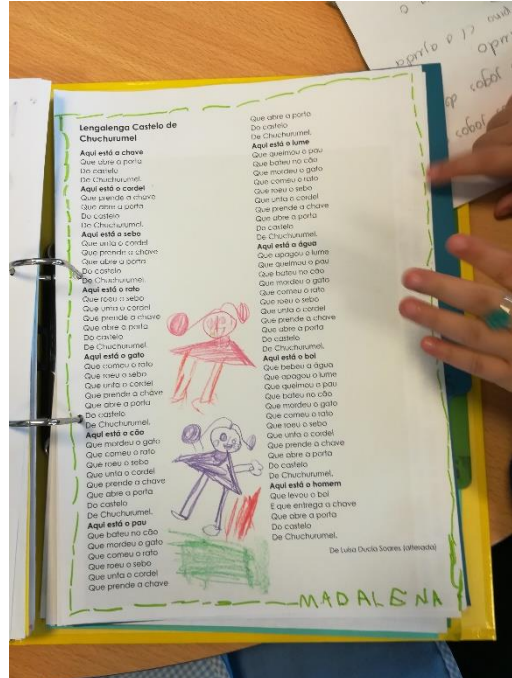 Lengalenga Castelo de
Chuchurumel
Aqui está a chave
Que abre a porta
Do castelo
De Chuchurumel.
Aqui está o cordel
Que prende a chave
Que abre a porta
Do castelo
De Chuchurumel.
Aqui está o sebo
Que unta o cordel
Que prende a chave
Que abre a porta
Do castelo
De Chuchurumel.
Aqui está o rato
Que roeu o sebo
Que unta o cordel
Que prende a chave
Que abre a porta
Do castelo
De Chuchurumel.
Aqui está o gato
Que comeu o rato
Que roeu o sebo
Que unta o cordel
Que prende a chave
Que abre a porta
Do castelo
De Chuchurumel.
Aqui está o cão
Que mordeu o gato
Que comeu o rato
Que roeu o sebo
Que unta o cordel
Que prende a chave
Que abre a porta
Do castelo
De Chuchurumel.
Aqui está o pau
Que bateu no cão
Que mordeu o gato
Que comeu o rato
Que roeu o sebo
Que unta o cordel
Que prende a chave
Que abre a porta
Do castelo
De Chuchurumel.
Aqui está o lume
Que queimou o pau
Que bateu no cão
Que mordeu o gato
Que comeu o rato
Que roeu o sebo
Que unta o cordel
Que prende a chave
Que abre a porta
Do castelo
De Chuchurumel.
Aqui está a água
Que apagou o lume
Que queimou o pau
Que bateu no cão
Que mordeu o gato
Que comeu o rato
Que roeu o sebo
Que unta o cordel
Que prende a chave
Que abre a porta
Do castelo
De Chuchurumel.
Aqui está o boi
Que bebeu a água
Que apagou o lume
Que queimou o pau
Que bateu no cão
Que mordeu o gato
Que comeu o rato
Que roeu o sebo
Que unta o cordel
Que prende a chave
Que abre a porta
Do castelo
De Chuchurumel.
Aqui está o homem
Que levou o boi
E que entrega a chave
Que abre a porta
Do castelo
De Chuchurumel.
De Luísa Ducla Soares (alterado)
MADALENA